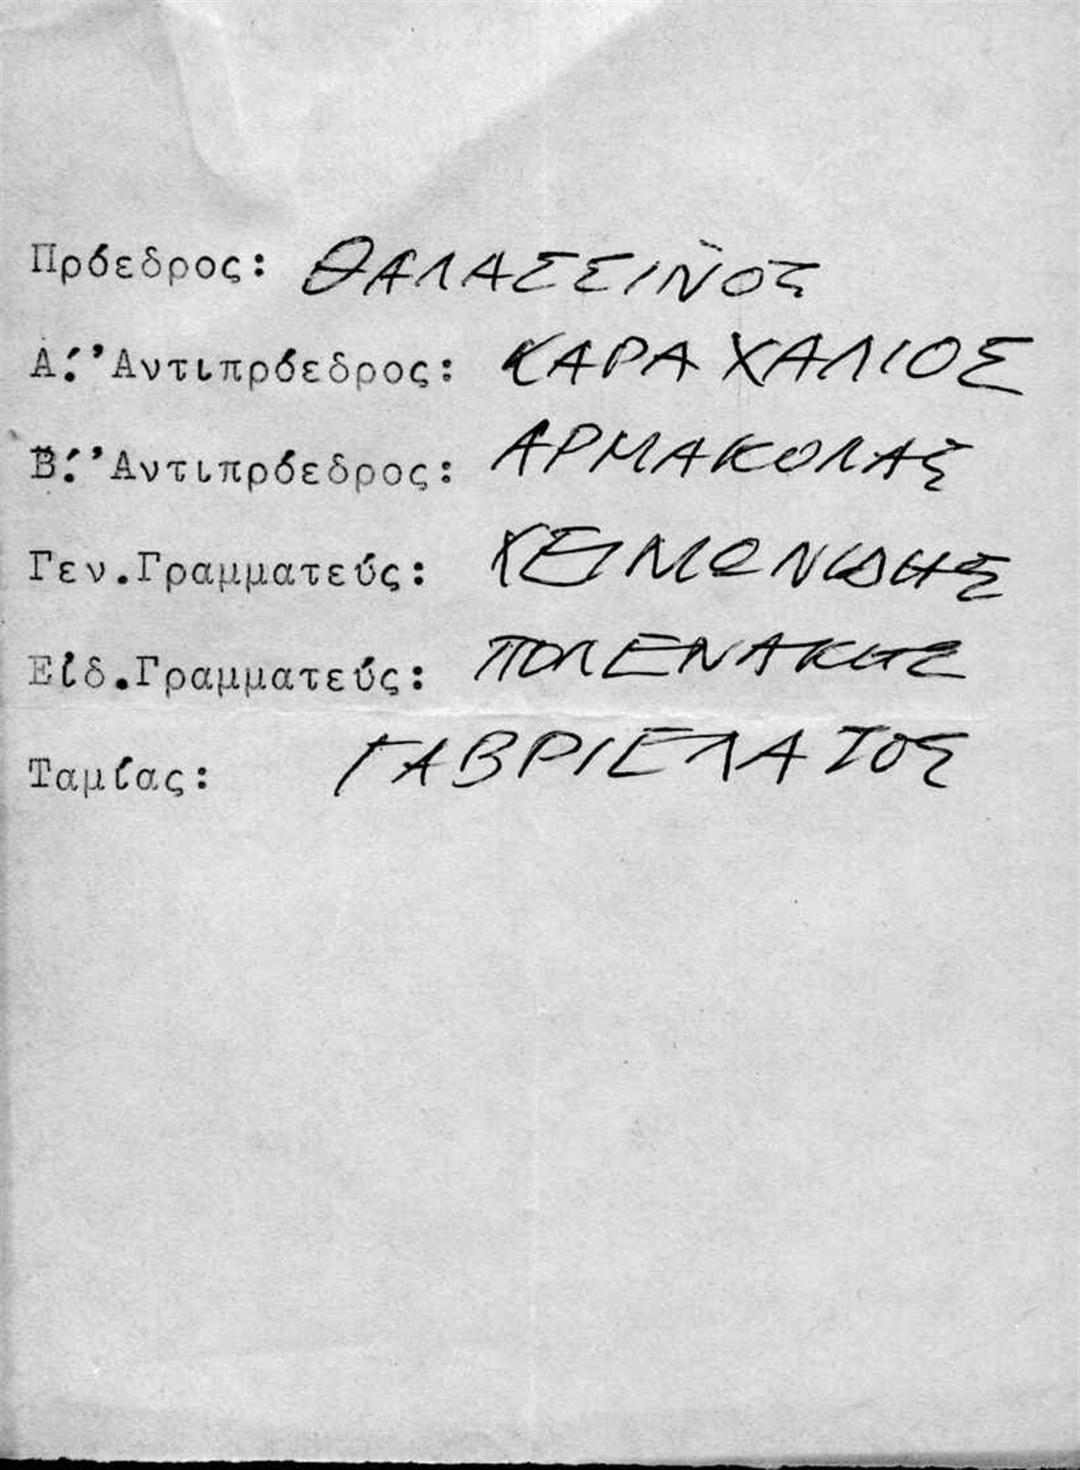 Πρόεδρος: ΘΑΛΑΣΣΙΝΟΣ
Α.' 'Αντιπρόεδρος: ΚΑΡΑΧΑΛΙΟΣ
Β.' 'Αντιπρόεδρος: ΑΡΜΑΚΟΛΑΣ
Γεν.Γραμματεύς: ΧΕΙΜΩΝΙΔΗΣ
Είδ.Γραμματεύς: ΠΟΛΕΝΑΚΗΣ
Ταμίας: ΓΑΒΡΙΕΛΑΤΟΣ